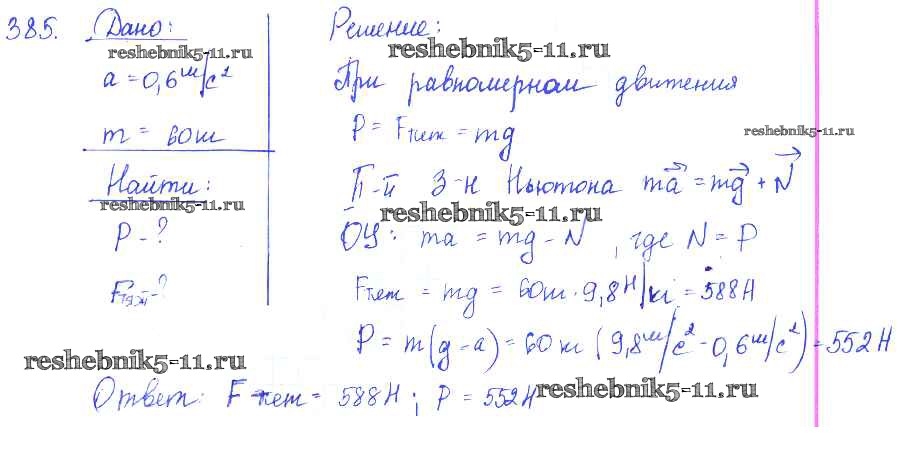 385. Дано:
reshebnik5-11.ru
a = 0,6 м/с²
m = 60кг
Найти:
reshebnik5-11.ru
P - ?
Fтяж - ?
Решение:
reshebnik5-11.ru
При равномерном движения
P = Fтяж = mg
reshebnik5-11.ru
II-й З-н Ньютона ma = mg + N
reshebnik5-11.ru
ОУ: ma = mg - N, где N = P
Fтяж = mg = 60кг · 9,8 Н/кг = 588Н
P = m(g - a) = 60кг (9,8 м/с² - 0,6 м/с²) = 552Н
reshebnik5-11.ru
Ответ: Fтяж = 588Н; P = 552Н
reshebnik5-11.ru